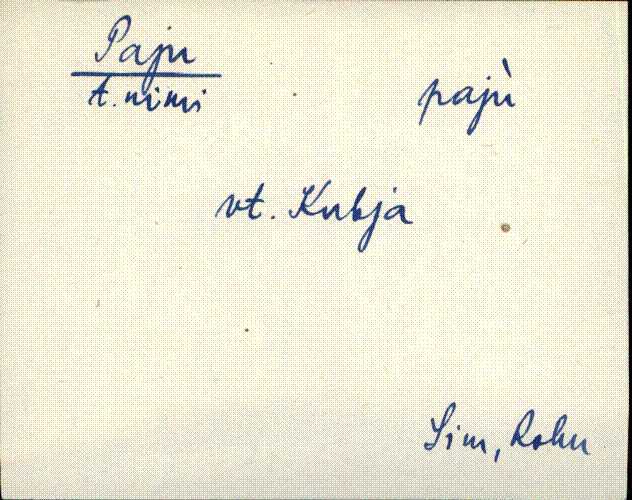 Paju
t. nimi
pajù
vt. Kubja
Sim, Rohu